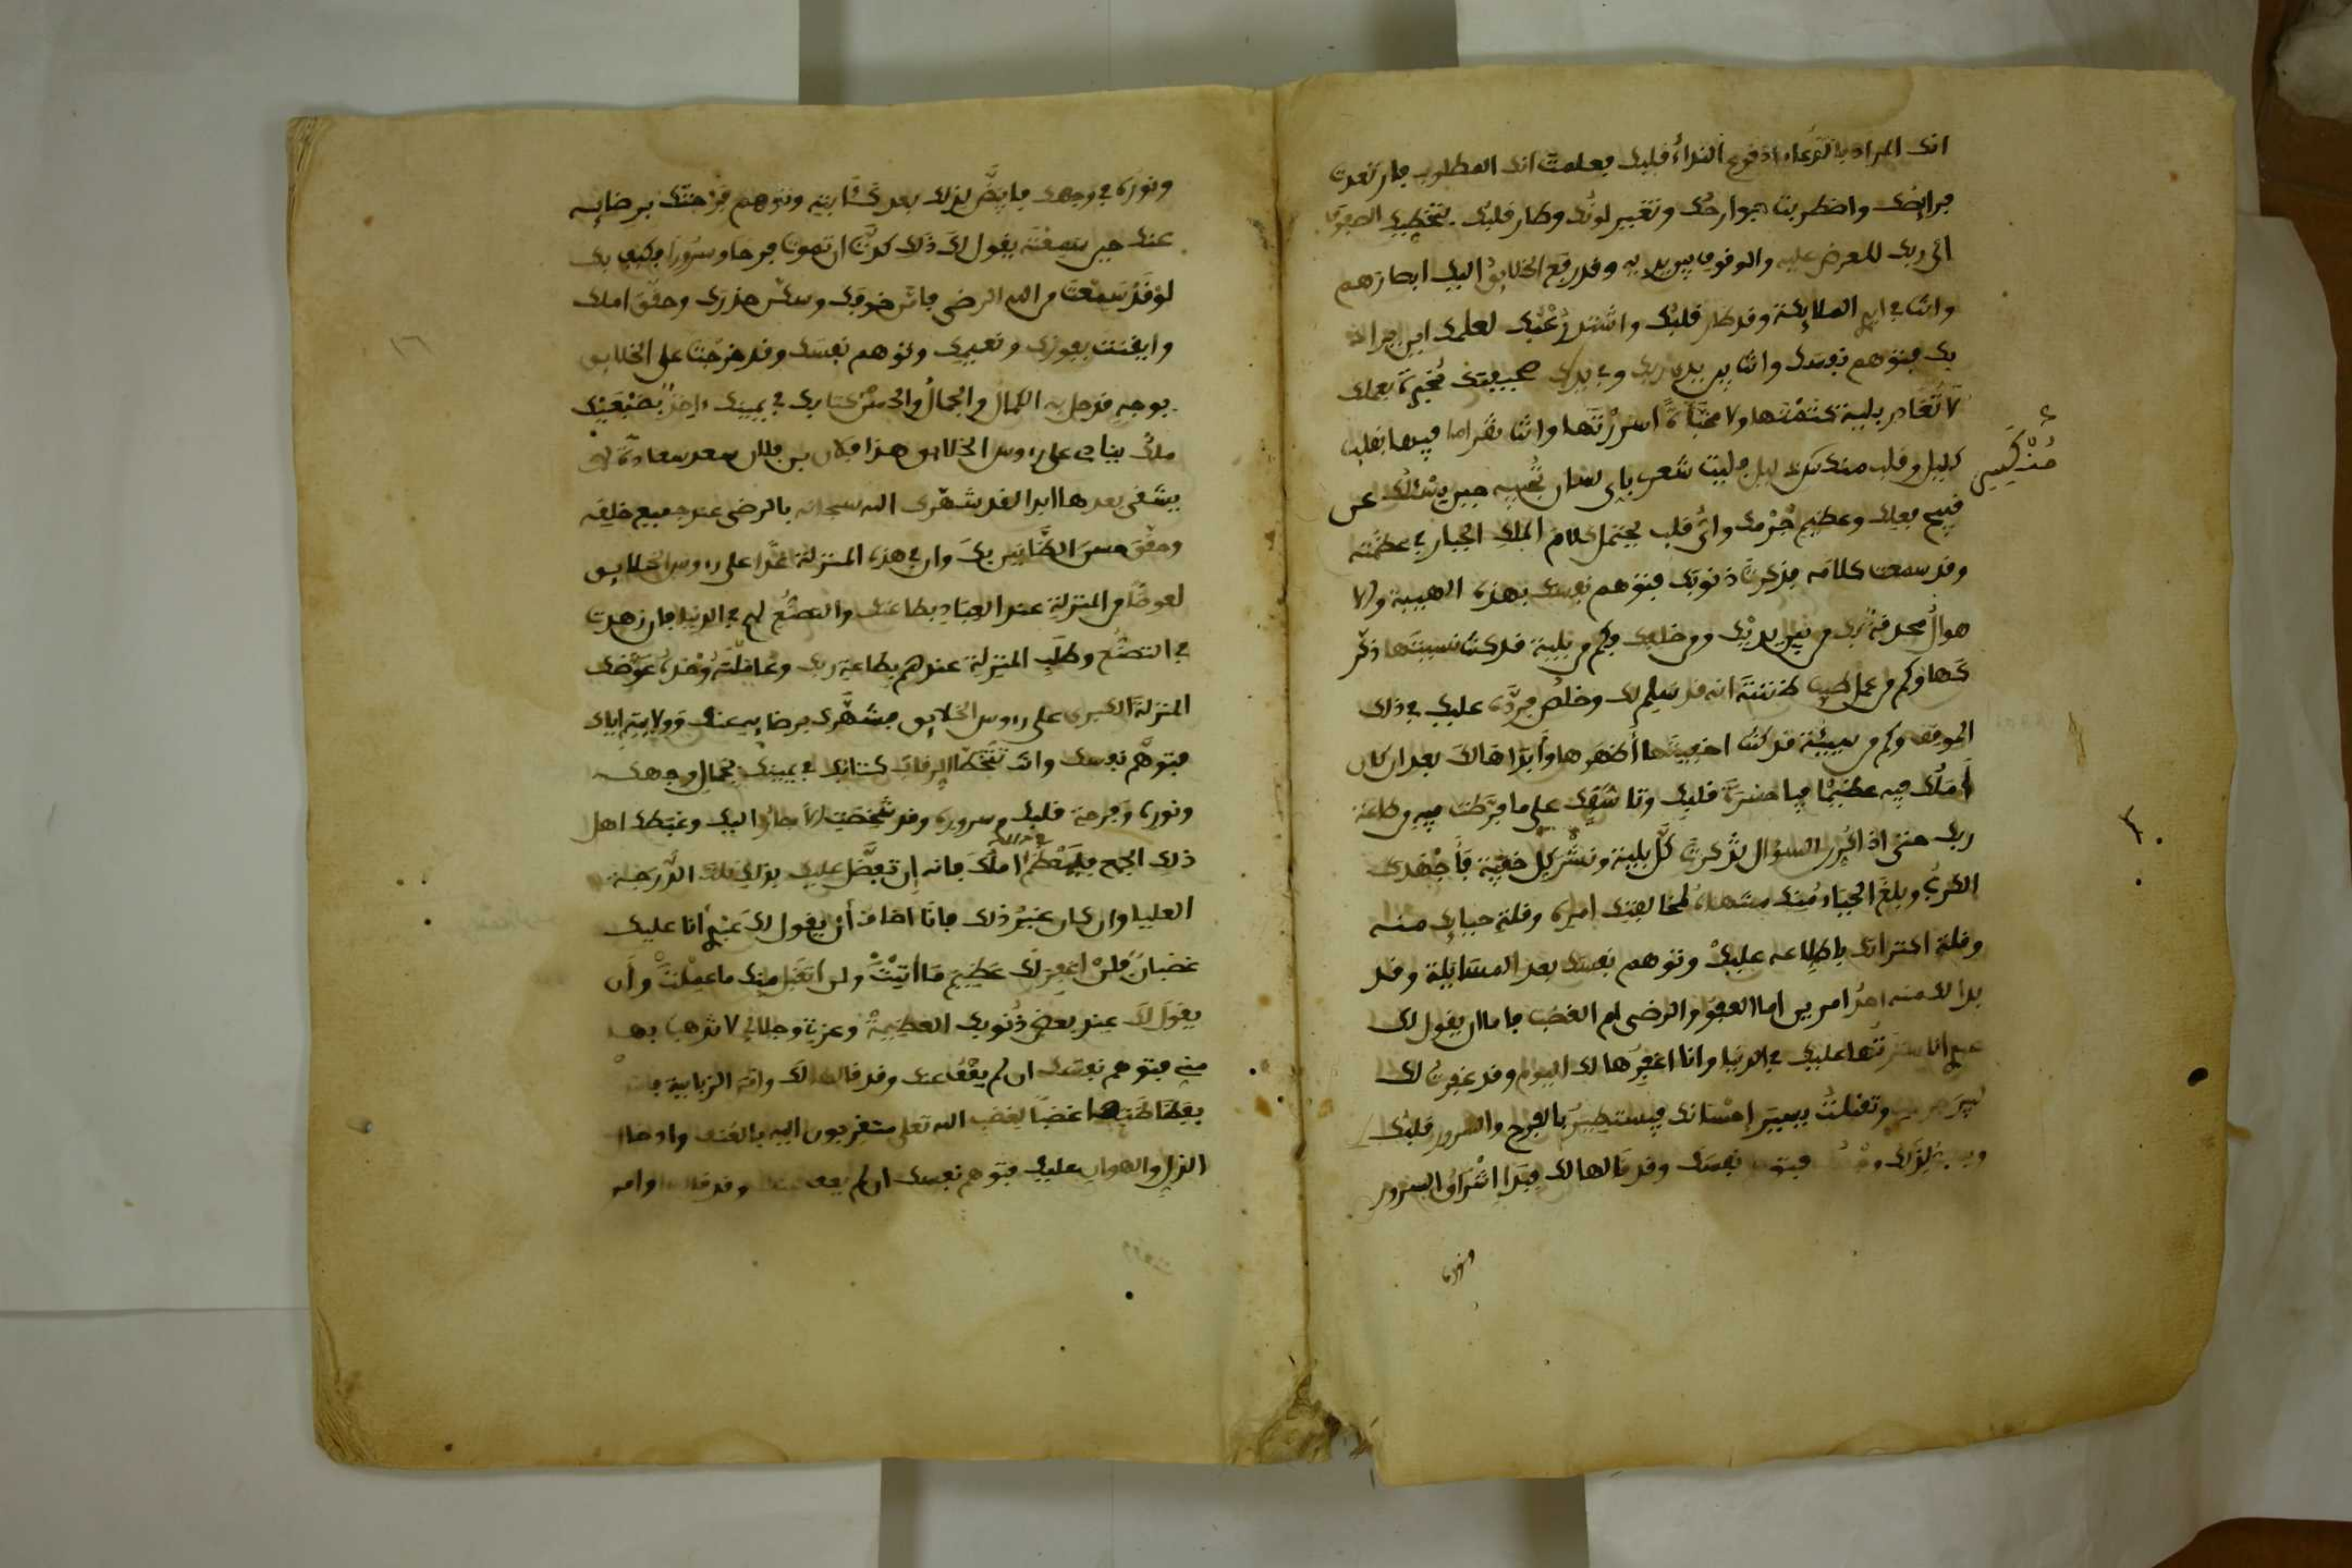 انك المراد بالدعاء اذ قرع النداء قلبك فعلمت انك المطلوب فارتعدت
فرائصك واضطربت جوارحك وتغير لونك وطار قلبك تتخطى بك الصفوف
الى ربك للعرض عليه والوقوف بين يديه وقد رفع الخلايق اليك ابصارهم
وانت في ايدي الملايكة وقد طار قلبك واشتد رعبك لعلمك اين يراد
بك فتوهم نفسك وانت بين يدي ربك وفي يدك صحيفة مخبرة بعملك
لا تغادر بلية كتمتها ولا مخبأة اسررتها وانت تقرا ما فيها بلسان
كليل وقلب منكسر فليت شعري باي لسان تجيبه حين يسئلك عن
قبيح فعلك وعظيم جرمك واي قلب يحتمل كلام الملك الجبار في عظمته
وقد سمعت كلامه فذكرت ذنوبك فتوهم نفسك بهذه الهيبة والا
هوال محدقة بك من بين يديك ومن خلفك فكم من بلية قد كنت نسيتها ذكر
كها وكم من عمل ظننت انه قد سلم لك وخلص فرده عليك في ذلك
الموقف وكم من سيئة قد كنت اخفيتها اظهرها وابداها لك بعد ان كان
املك فيه عظيما فيا حسرة قلبك وتاسفك على ما فرطت فيه من طاعة
ربك حتى اذا كرر السؤال بذكر كل بلية ونشر كل خفية فاجهدك
الكرب وبلغ الحياء منك منتهاه لمخالفتك امره وقلة حيايك منه
وقلة اكتراثك باطلاعه عليك وتوهم نفسك بعد المسايلة وقد
بدا لك منه احد امرين اما العفو والرضى ام الغضب فاما ان يقول لك
عبدي انا سترتها عليك في الدنيا وانا اغفرها لك اليوم وقد غفرت لك
كبير جرمك وتقبلت يسير احسانك فيستطير بالفرح والسرور قلبك
لذلك فتوهم نفسك وقد قالها لك فبدا اشراق السرور
منكسر
ونوره
ونوره في وجهك فابيض لذلك بعد كآبته وتوهم فرحتك برضايه
عنك حين سمعته يقول لك ذلك كدت ان تموت فرحا وسرورا فكيف بك
لو قد سمعت من الله الرضى فامن خوفك وسكن حذرك وحقق املك
وايقنت بفوزك ونعيمك وتوهم نفسك وقد خرجت على الخلايق
بوجه قد حل به الكمال والجمال والحسن كتابك في يمينك اخذ بضبعيك
ملك ينادي على رءوس الخلايق هذا فلان بن فلان سعد سعادة لا
يشقى بعدها ابدا لقد شهرك الله سبحانه بالرضى عند جميع خلقه
وحقق حسن الظانين بك وان في هذه المنزلة غدا على رءوس الخلايق
لعوضا من المنزلة عند العباد بطاعتك والتصنع لهم في الدنيا فان زهدت
في التصنع وطلب المنزلة عندهم بطاعة ربك وعاملته وحده عوضك
المنزلة الكبرى على رءوس الخلايق فشهرك برضايه عنك وولايته اياك
فتوهم نفسك وانت تتخطى الرقاب كتابك في يمينك بجمال وجهك
ونوره وفرحة قلبك وسروره وقد شخصت الابصار اليك وغبطك اهل
ذلك الجمع فليعظم املك فانه ان تفضل عليك بذلك تلك الدرجة
العليا وان كان غير ذلك فانا اخاف ان يقول لك عبدي انا عليك
غضبان فلن اغفر لك عظيم ما اتيت ولن اتقبل منك ما عملت وان
يقول لك عند بعض ذنوبك العظيمة وعزتي وجلالي لا تذهب بها
مني فتوهم نفسك ان لم يعف عنك وقد قالها لك واتته الزبانية
غضبا لغضب الله تعلى متقربون اليه بالعنف وادخال
الذل والهوان عليك فتوهم نفسك ان لم يعف عنك وقد قالها وامر